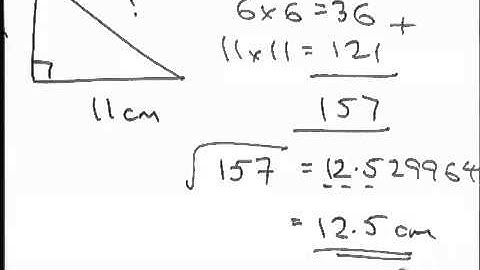 ?
6×6 = 36 +
11×11 = 121
11 cm
157
√157 = 12.529964
= 12.5 cm